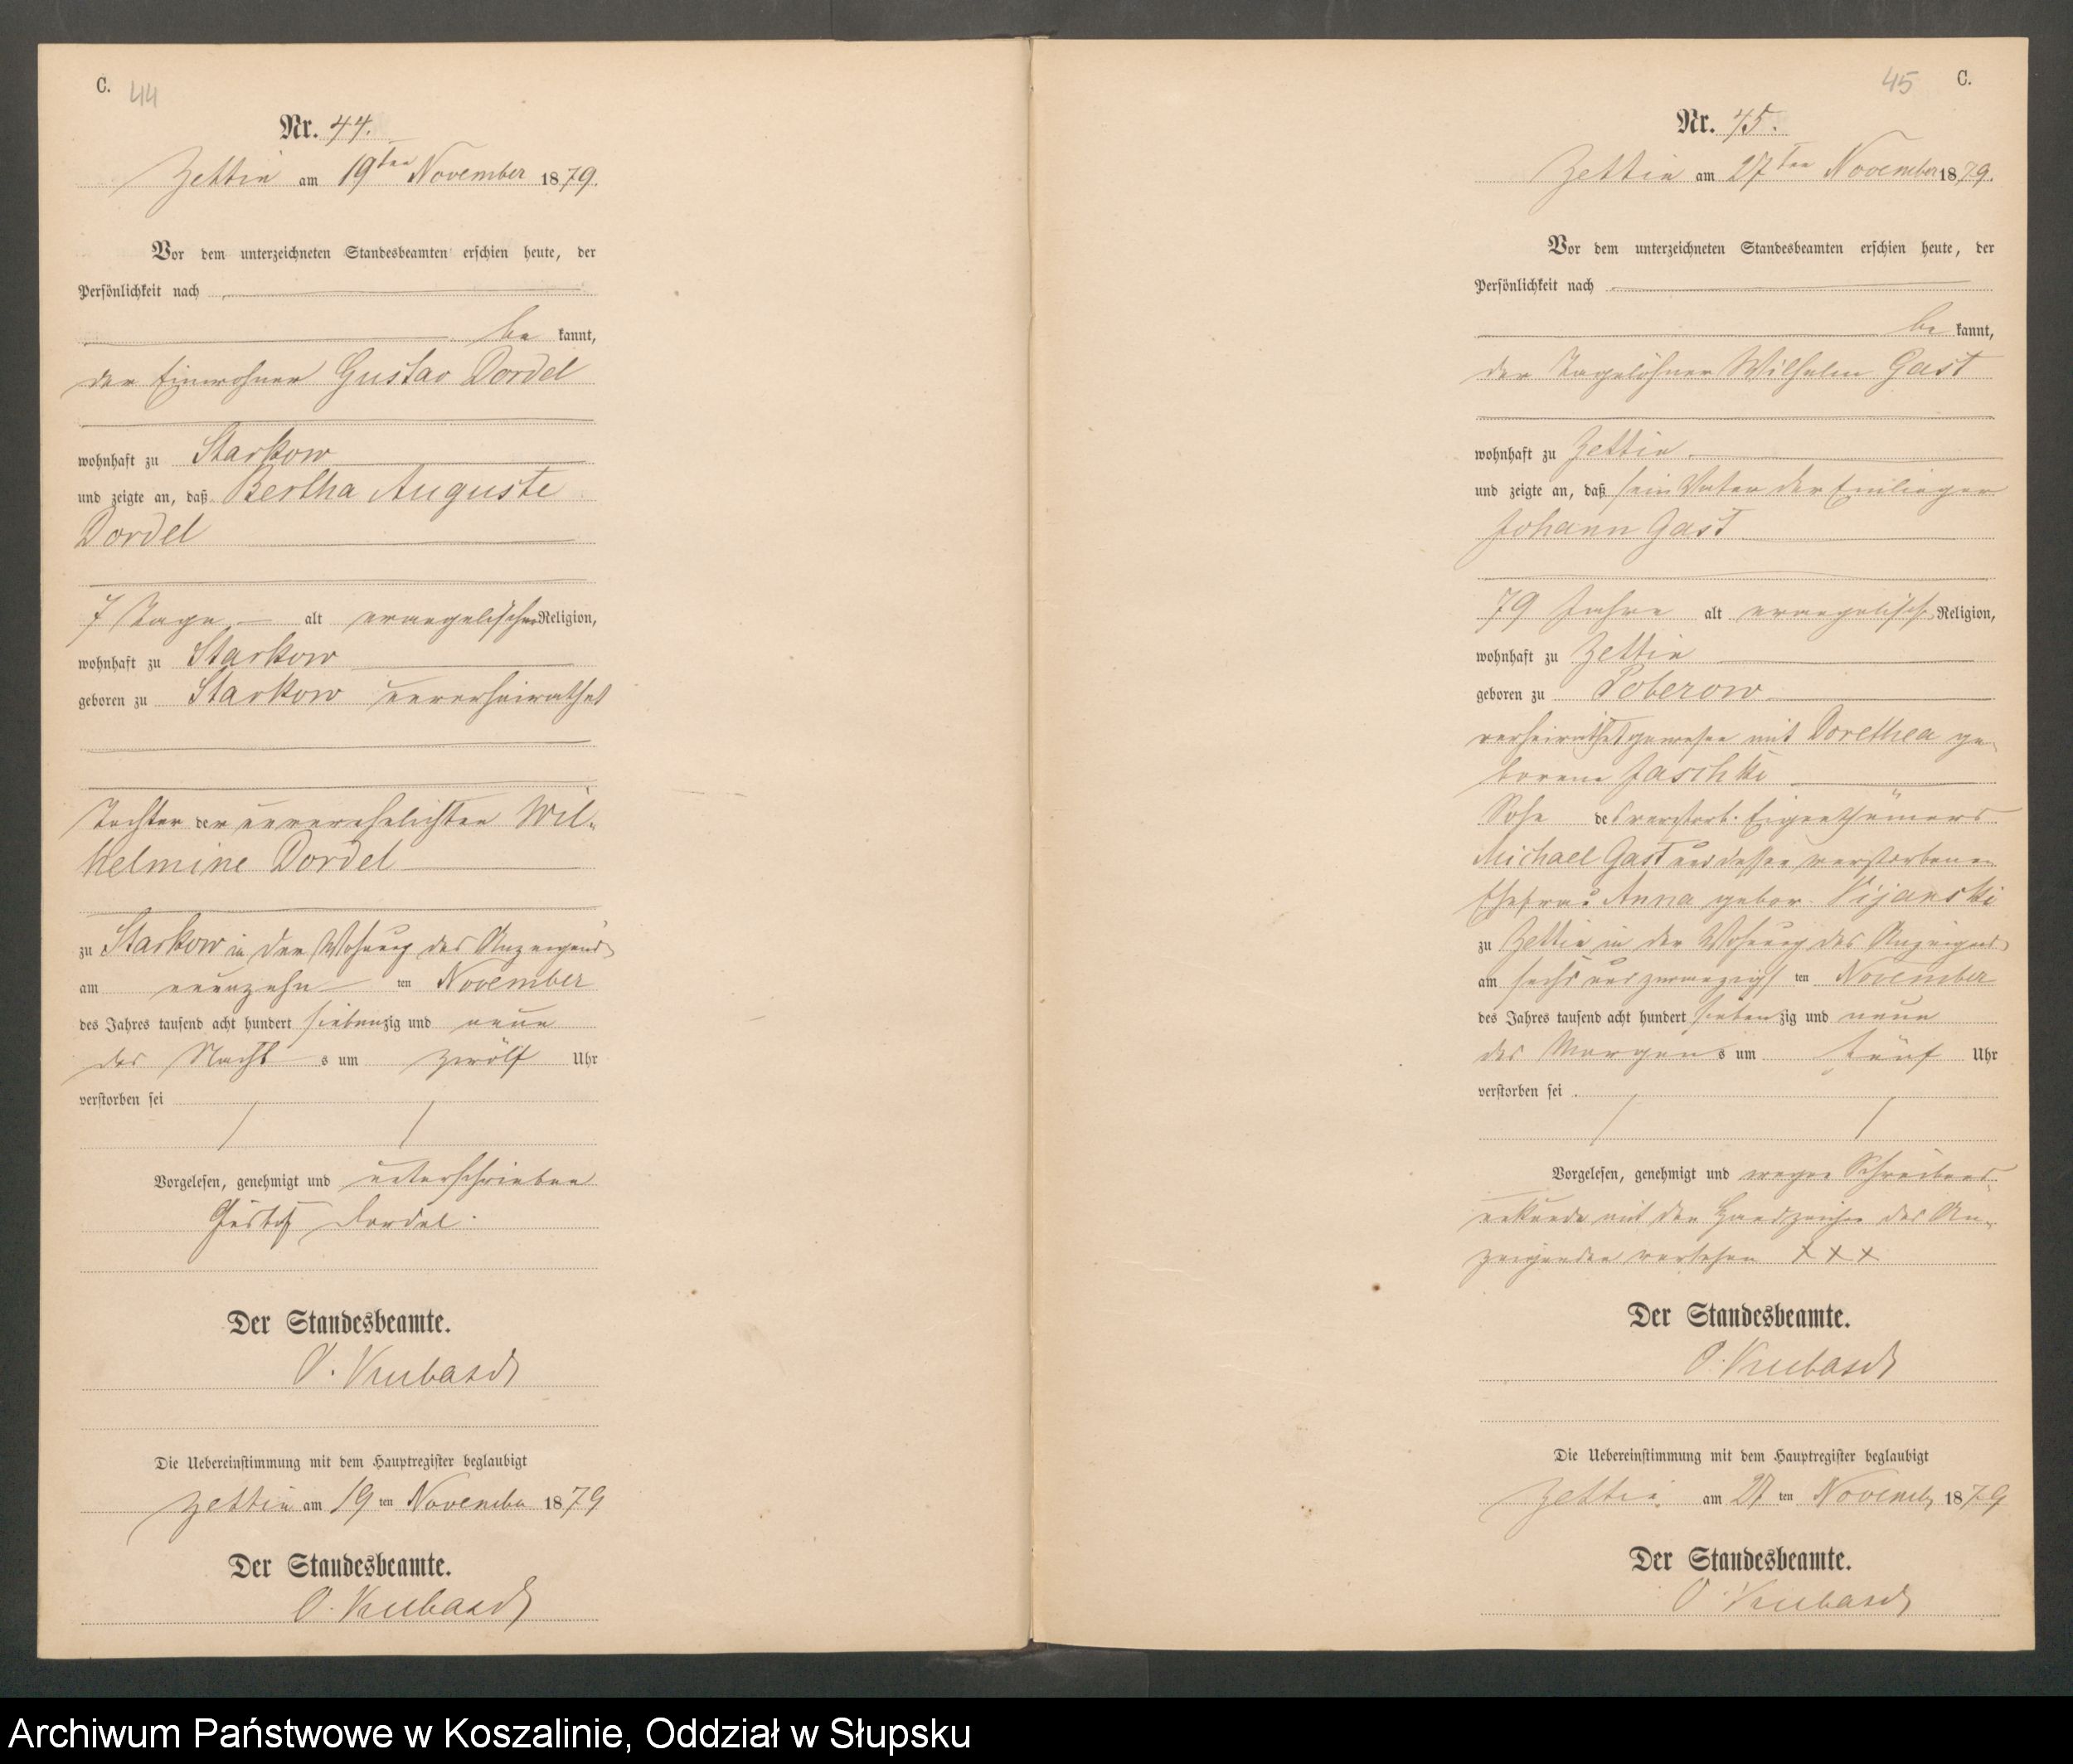 C. 44
Nr. 44.
Zettin am 19ten November 1879.
Vor dem unterzeichneten Standesbeamten erschien heute, der
Persönlichkeit nach
be kannt,
der Einwohner Gustav Dordel
wohnhaft zu Starkow
und zeigte an, daß Bertha Auguste
Dordel
7 Tage alt evangelischer Religion,
wohnhaft zu Starkow
geboren zu Starkow unverheirathet
Tochter der unverehelichten Wil-
helmine Dordel
zu Starkow in der Wohnung des Anzeigends
am neunzehn ten November
des Jahres tausend acht hundert siebenzig und neun
des Nacht s um zwölf Uhr
verstorben sei
Vorgelesen, genehmigt und unterschrieben
Gustaf Dordel.
Der Standesbeamte.
O. Kubasch
Die Uebereinstimmung mit dem Hauptregister beglaubigt
Zettin am 19 ten November 1879
Der Standesbeamte.
O. Kubasch
45 C.
Nr. 45.
Zettin am 27ten November 1879.
Vor dem unterzeichneten Standesbeamten erschien heute, der
Persönlichkeit nach
be kannt,
der Tagelöhner Wilhelm Gast
wohnhaft zu Zettin
und zeigte an, daß sein Vater der Einlieger
Johann Gast
79 Jahre alt evangelisch Religion,
wohnhaft zu Zettin
geboren zu Poberow
verheirathet gewesen mit Dorethea ge-
borene Jaschki
Sohn des verstorb. Eigenthümers
Michael Gast und dessen verstorbenen
Ehefrau Anna gebor.
zu Zettin in der Wohnung des Anzeigends
am sechs und zwanzigst ten November
des Jahres tausend acht hundert sieben zig und neun
des Morgen s um fünf Uhr
verstorben sei
Vorgelesen, genehmigt und wegen Schreibens-
unkunde mit den Handzeichen des An-
zeigenden versehen XXX
Der Standesbeamte.
O. Kubasch
Die Uebereinstimmung mit dem Hauptregister beglaubigt
Zettin am 27 ten November 1879
Der Standesbeamte.
O. Kubasch
Archiwum Państwowe w Koszalinie, Oddział w Słupsku